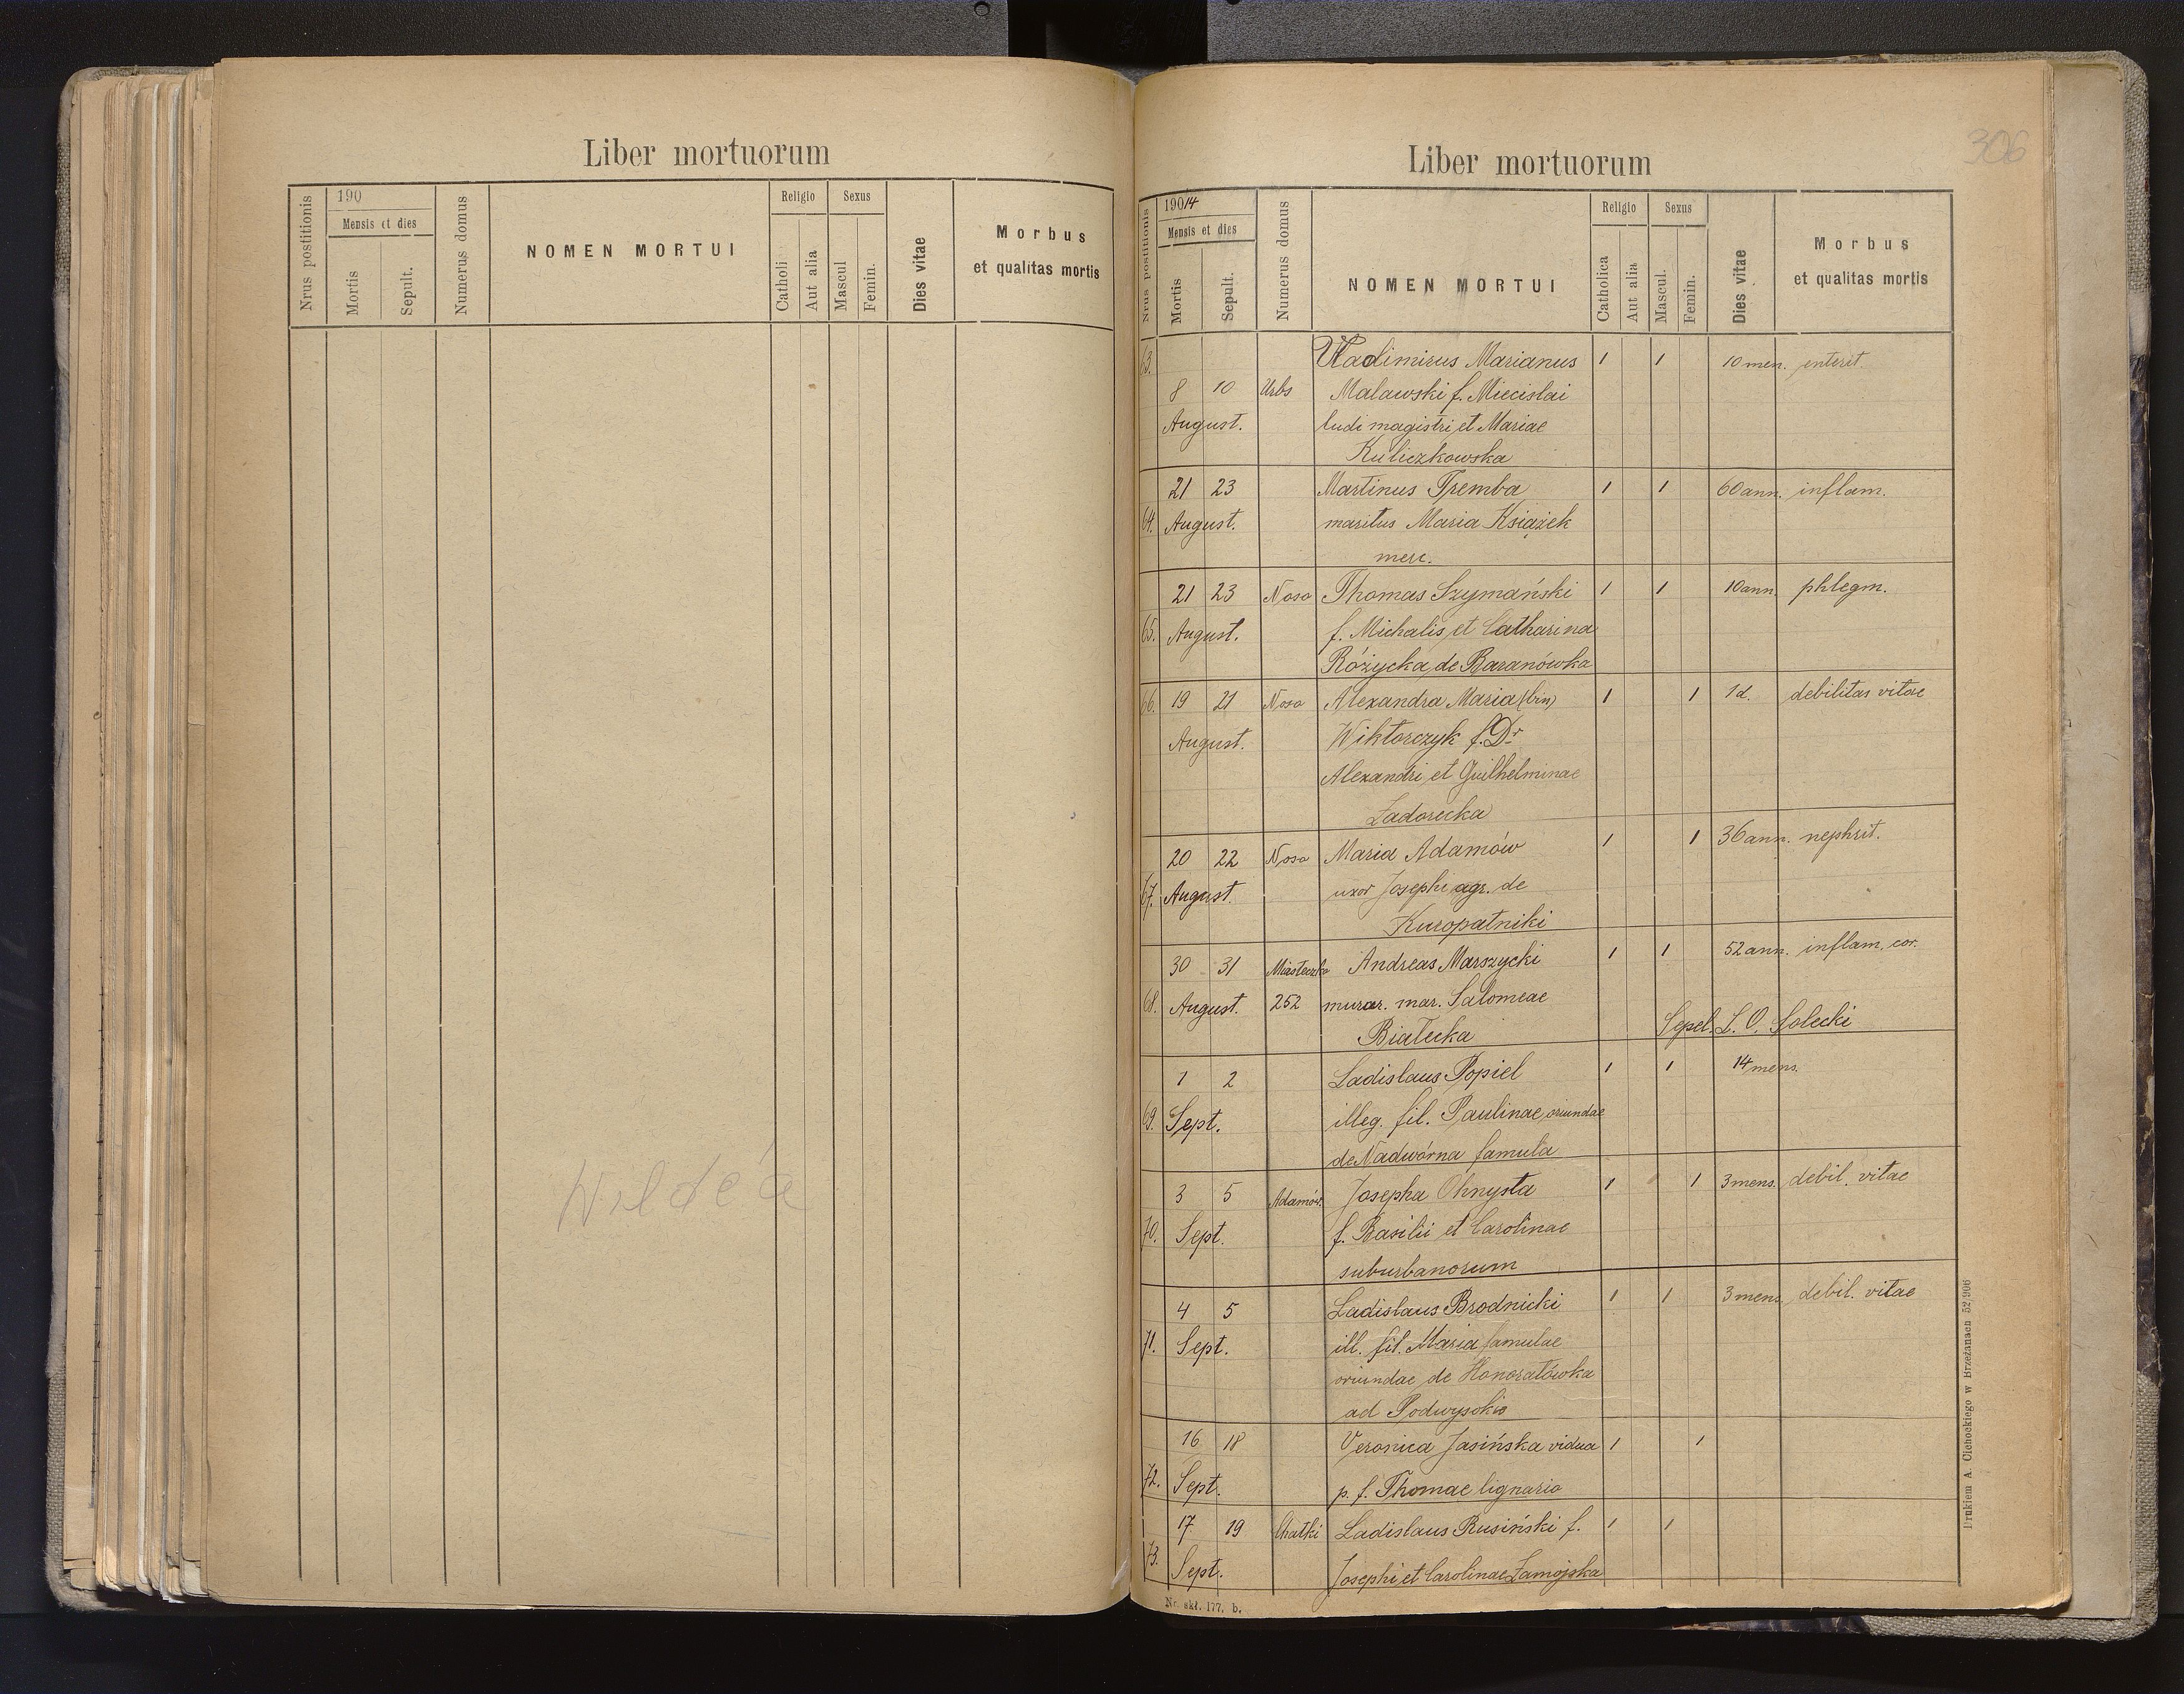 Liber mortuorum
Nrus postitionis
190
Mensis et dies
Mortis
Sepult.
Numerus domus
NOMEN MORTUI
Religio
Catholi
Aut alia
Sexus
Mascul
Femin.
Dies vitae
Morbus
et qualitas mortis
306
Liber mortuorum
Nrus postitionis
19014
Mensis et dies
Mortis
Sepult.
Numerus domus
NOMEN MORTUI
Religio
Catholica
Aut alia
Sexus
Mascul.
Femin.
Dies vitae
Morbus
et qualitas mortis
63. Vladimirus Marianus 1 1 10 men. enterit.
8 10 Urbs Malawski f. Miecislai
August. ludi magistri et Mariae
Kuliczkowska
21 23 Martinus Tremba 1 1 60 ann. inflam.
64. August. maritus Maria Książek
merc.
21 23 Noso Thomas Szymański 1 1 10 ann. phlegm.
65. August. f. Michalis et Catharina
Różycka de Baranówka
66. 19 21 Noso Alexandra Maria (bin) 1 1 1 d. debilitas vitae
August. Wiktorczyk f. Dr
Alexandri et Guilhelminae
Zadorecka
20 22 Noso Maria Adamów 1 1 36 ann. nephrit.
67. August. uxor Josephi agr. de
Kuropatniki
30 31 Miasteczko Andreas Marszycki 1 1 52 ann. inflam. cor.
68. August. 252 murar. mar. Salomeae
Białecka Sepel. L. O. Solecki
1 2 Ladislaus Popiel 1 1 14 mens.
69. Sept. illeg. fil. Paulinae oriundae
de Nadwórna famula
3 5 Adamów. Josepha Ohnysta 1 1 3 mens. debil. vitae
70. Sept. f. Basilii et Carolinae
suburbanorum
4 5 Ladislaus Brodnicki 1 1 3 mens. debil. vitae
71. Sept. ill. fil. Maria famulae
oriundae de Honoratówka
ad Podwysokie
16 18 Veronica Jasińska vidua 1 1
72. Sept. p. f. Thomae lignario
17 19 Chatki Ladislaus Rusiński f. 1 1
73. Sept. Josephi et Carolinae Zamojska
Nr. skł. 177. b.
Drukiem A. Cichockiego w Brzeżanach 52 906